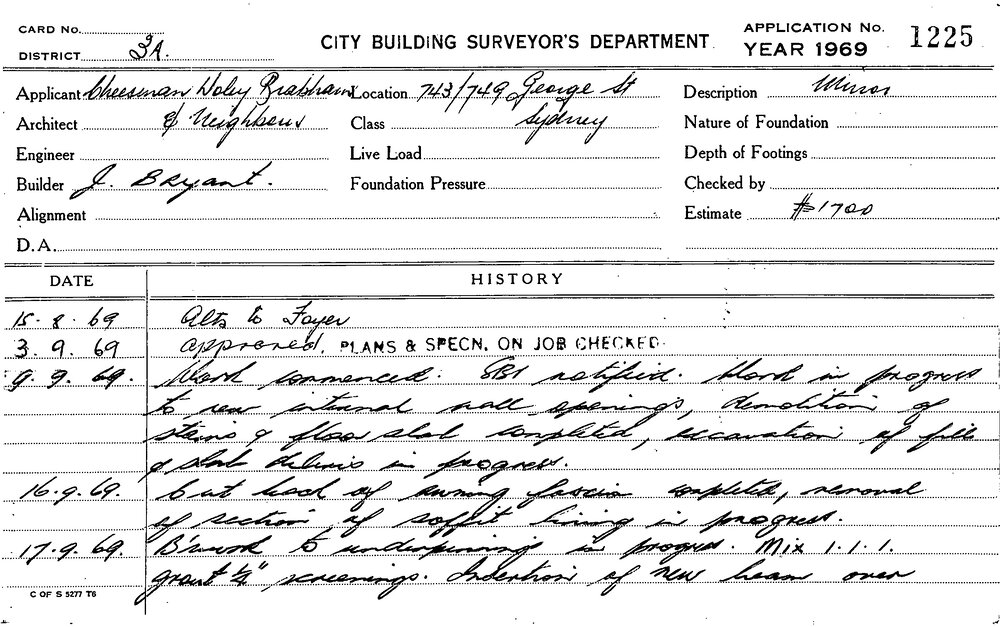 CARD No.
DISTRICT 3A.
CITY BUILDING SURVEYOR'S DEPARTMENT
APPLICATION No. 1225
YEAR 1969
Applicant Cheesman Doley Brabham Location 743/749 George St Description Minor
Architect & Neighbour Class Sydney Nature of Foundation
Engineer Live Load Depth of Footings
Builder J. Bryant. Foundation Pressure Checked by
Alignment Estimate $1700
D.A.
DATE HISTORY
15.8.69 Alts to Foyer
3.9.69 approved. PLANS & SPECN. ON JOB CHECKED.
9.9.69. Work commenced. notified. Work in progress
to new internal wall openings, demolition of
stairs & floor slab completed, excavation of fill
& slab debris in progress.
16.9.69. Cut back of awning fascia completed, removal
of section of soffit lining in progress.
17.9.69. B'work to underpinning in progress. Mix 1.1.1.
grout ¼" screenings. Insertion of new beam over
C OF S 5277 T6